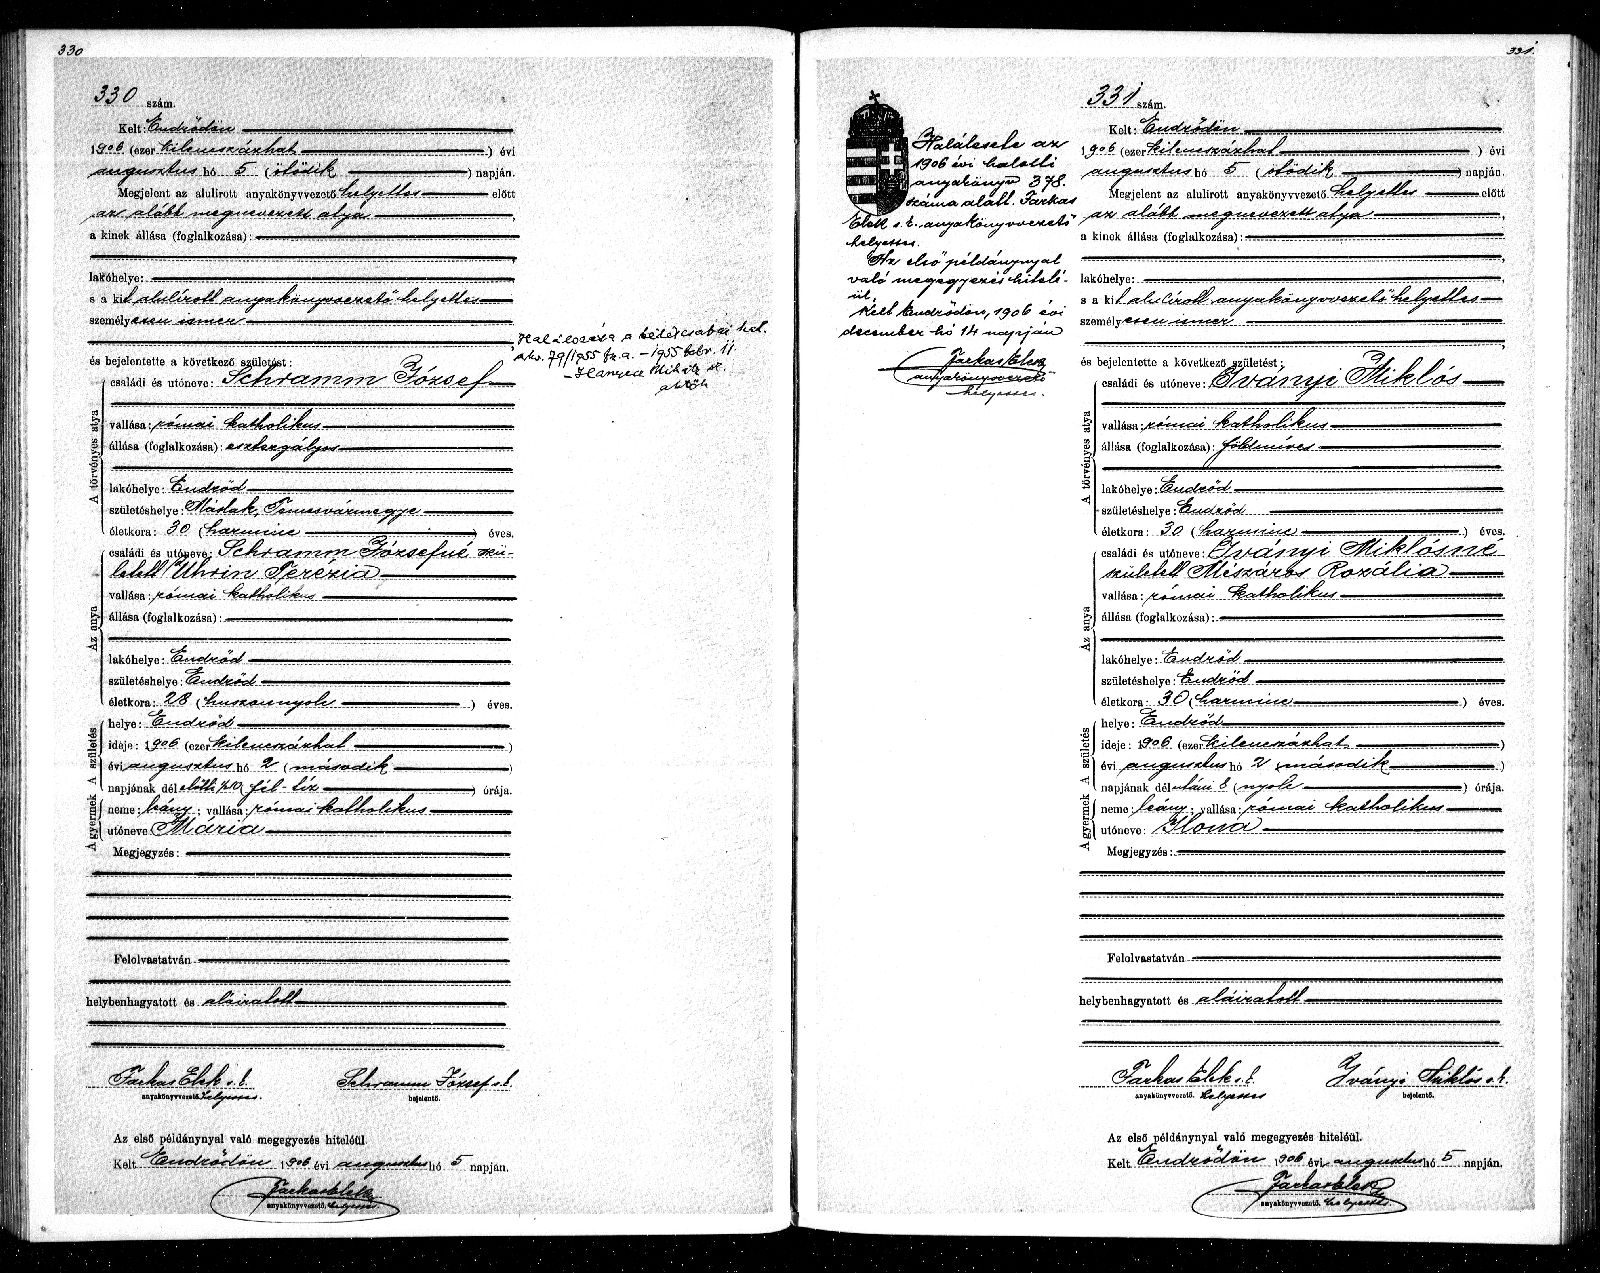 330
330 szám.
Kelt: Endrődön
1906 (ezer kilenczszázhat) évi
augusztus hó 5 (ötödik) napján.
Megjelent az alulirott anyakönyvvezető helyettes előtt
az alább megnevezett atya,
a kinek állása (foglalkozása):
lakóhelye:
s a kit alulírott anyakönyvvezető helyettes
személyesen ismer
és bejelentette a következő születést:
A törvényes atya
családi és utóneve: Schramm József
vallása: római katholikus
állása (foglalkozása): esztergályos
lakóhelye: Endrőd
születéshelye: Máslak, Temesvármegye
életkora: 30 (harmincz) éves.
Az anya
családi és utóneve: Schramm Józsefné szü-
letett Uhrin Terézia
vallása: római katholikus
állása (foglalkozása):
lakóhelye: Endrőd
születéshelye: Endrőd
életkora: 28 (huszonnyolc) éves.
A születés
helye: Endrőd
ideje: 1906 (ezer kilenczszázhat)
évi augusztus hó 2 (második)
napjának dél előtti ½10 fél-tíz) órája.
A gyermek
neme: leány; vallása: római katholikus
utóneve: Mária
Megjegyzés:
Felolvastatván
helybenhagyatott és aláiratott
Farkas Elek s. k. Schramm József s. k.
anyakönyvvezető. helyettes. bejelentő.
Az első példánynyal való megegyezés hiteléül.
Kelt Endrődön 1906 évi augusztus hó 5 napján.
Farkas Elek
anyakönyvvezető. helyettes.
Halálozása a békéscsabai hal.
akv. 79/1955 fz. a. – 1955 febr. 11
Mihály
331.
Halálesete az
1906 évi halotti
anyakönyv 378.
száma alatt. Farkas
Elek s. k. anyakönyvvezető
helyettes.
Az első példánynyal
való megegyezés hitelé-
ül.
Kelt Endrődön, 1906 évi
december hó 14 napján
Farkas Elek
anyakönyvvezető
helyettes.
331 szám.
Kelt: Endrődön
1906 (ezer kilenczszázhat) évi
augusztus hó 5 (ötödik) napján.
Megjelent az alulirott anyakönyvvezető helyettes előtt
az alább megnevezett atya,
a kinek állása (foglalkozása):
lakóhelye:
s a kit alulírott anyakönyvvezető helyettes
személyesen ismer
és bejelentette a következő születést:
A törvényes atya
családi és utóneve: Iványi Miklós
vallása: római katholikus
állása (foglalkozása): földmíves
lakóhelye: Endrőd
születéshelye: Endrőd
életkora: 30 (harmincz) éves.
Az anya
családi és utóneve: Iványi Miklósné
született Mészáros Rozália
vallása: római katholikus
állása (foglalkozása):
lakóhelye: Endrőd
születéshelye: Endrőd
életkora: 30 (harmincz) éves.
A születés
helye: Endrőd
ideje: 1906 (ezer kilenczszázhat)
évi augusztus hó 2 (második)
napjának dél utáni 8 (nyolc) órája.
A gyermek
neme: leány; vallása: római katholikus
utóneve: Ilona
Megjegyzés:
Felolvastatván
helybenhagyatott és aláiratott
Farkas Elek s. k. Iványi Miklós s. k.
anyakönyvvezető. helyettes bejelentő.
Az első példánynyal való megegyezés hiteléül.
Kelt Endrődön 1906 évi augusztus hó 5 napján.
Farkas Elek
anyakönyvvezető. helyettes.